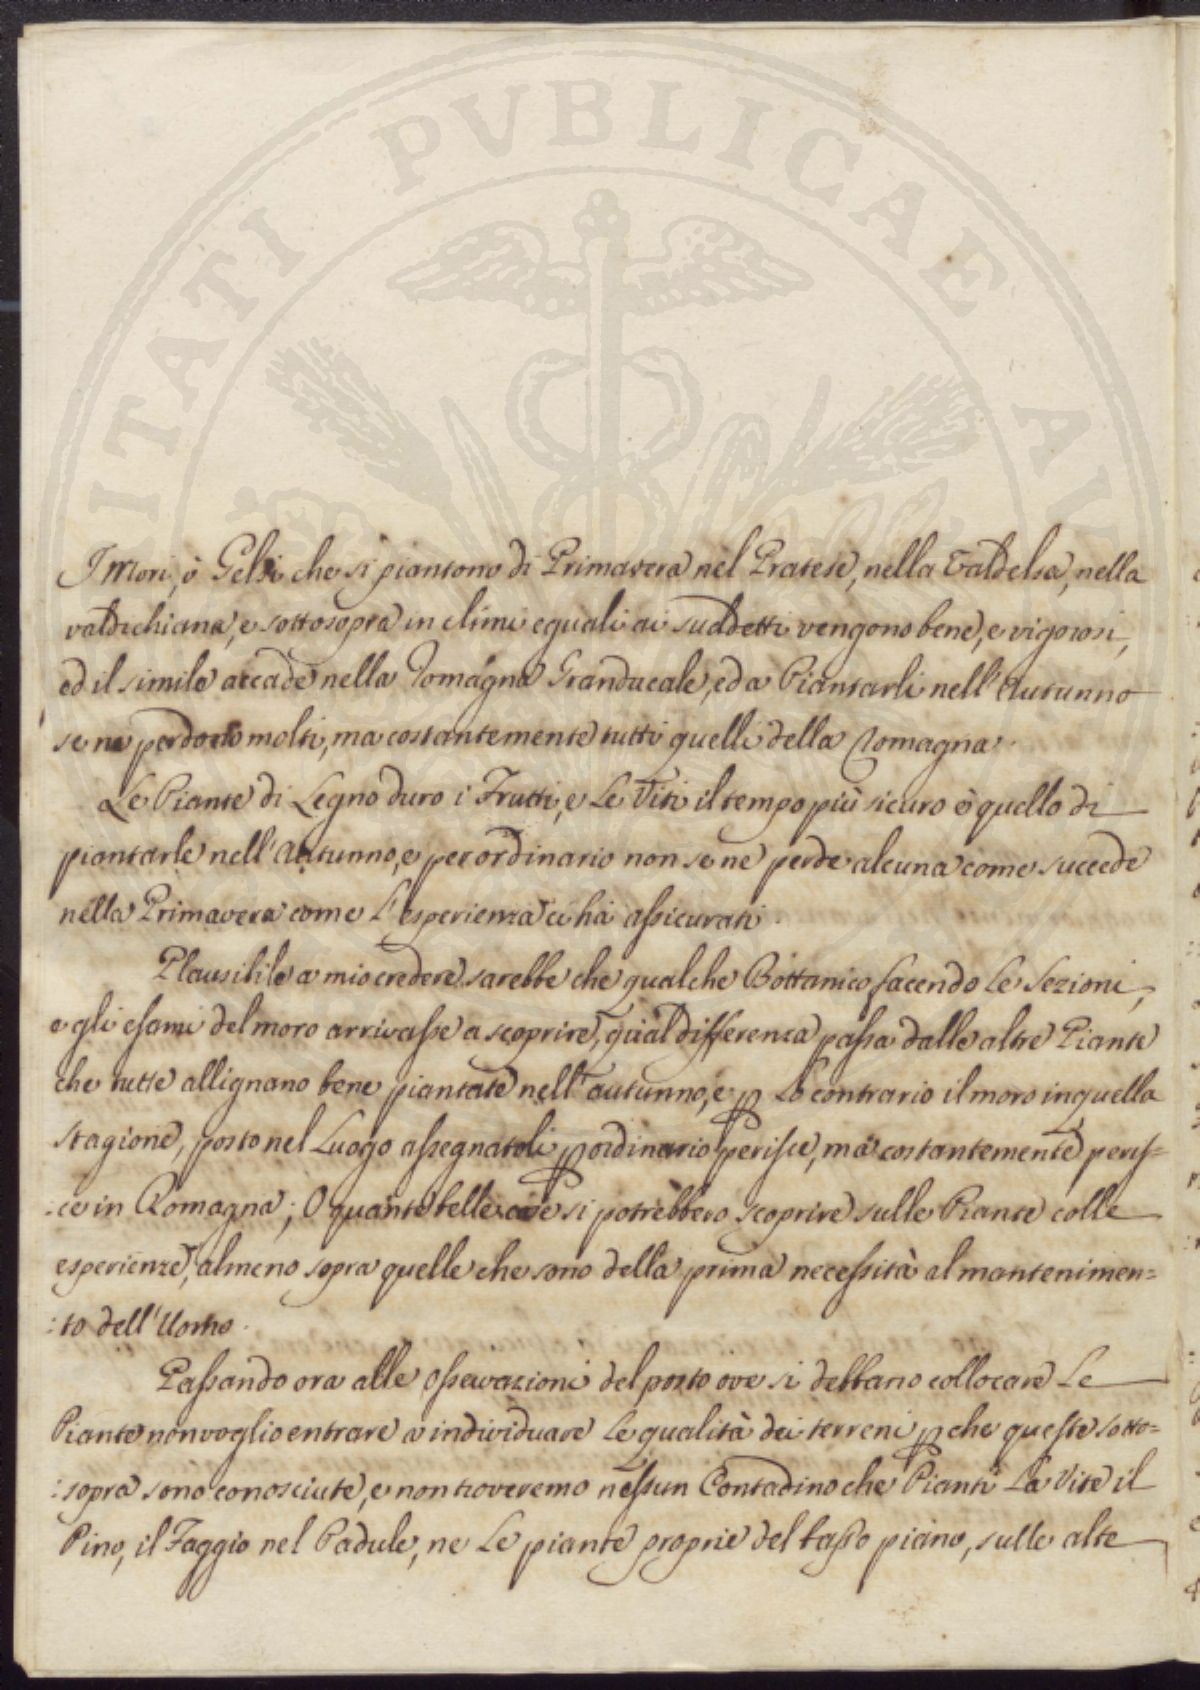 PUBLICAE
I Mori, ò Gelsi che si piantono di Primavera nel Pratese, nella Valdelsa, nella
valdichiana, e sottosopra in climi eguali ai suddetti vengono bene, e vigorosi,
ed il simile accade nella Romagna Granducale, ed a Piantarli nell'Autunno
se ne perdono molti, ma costantemente tutti quelli della Romagna.
Le Piante di Legno duro i Frutti, e Le Viti il tempo più sicuro è quello di
piantarle nell'Autunno, e per ordinario non se ne perde alcuna come succede
nella Primavera come L'esperienza ci hà assicurati.
Plausibile a mio credere sarebbe che qualche Bottanico facendo Le Sezioni,
e gli esami del moro arrivasse a scoprire, qual differenza passa dalle altre Piante
che tutte allignano bene piantate nell'autunno, e p Lo contrario il moro in quella
stagione, posto nel Luogo assegnatoli p ordinario perisce, ma costantemente peris=
:ce in Romagna; O quante belle cose si potrebbero scoprire sulle Piante colle
esperienze, almeno sopra quelle che sono della prima necessità al mantenimen=
:to dell'Uomo.
Passando ora alle Osservazioni del posto ove si debbano collocare Le
Piante non voglio entrare a individuare Le qualità dei terreni p che queste sotto=
:sopra sono conosciute, e non troveremo nessun Contadino che Pianti La Vite il
Pino, il Faggio nel Padule, ne Le piante proprie del basso piano, sulle alte